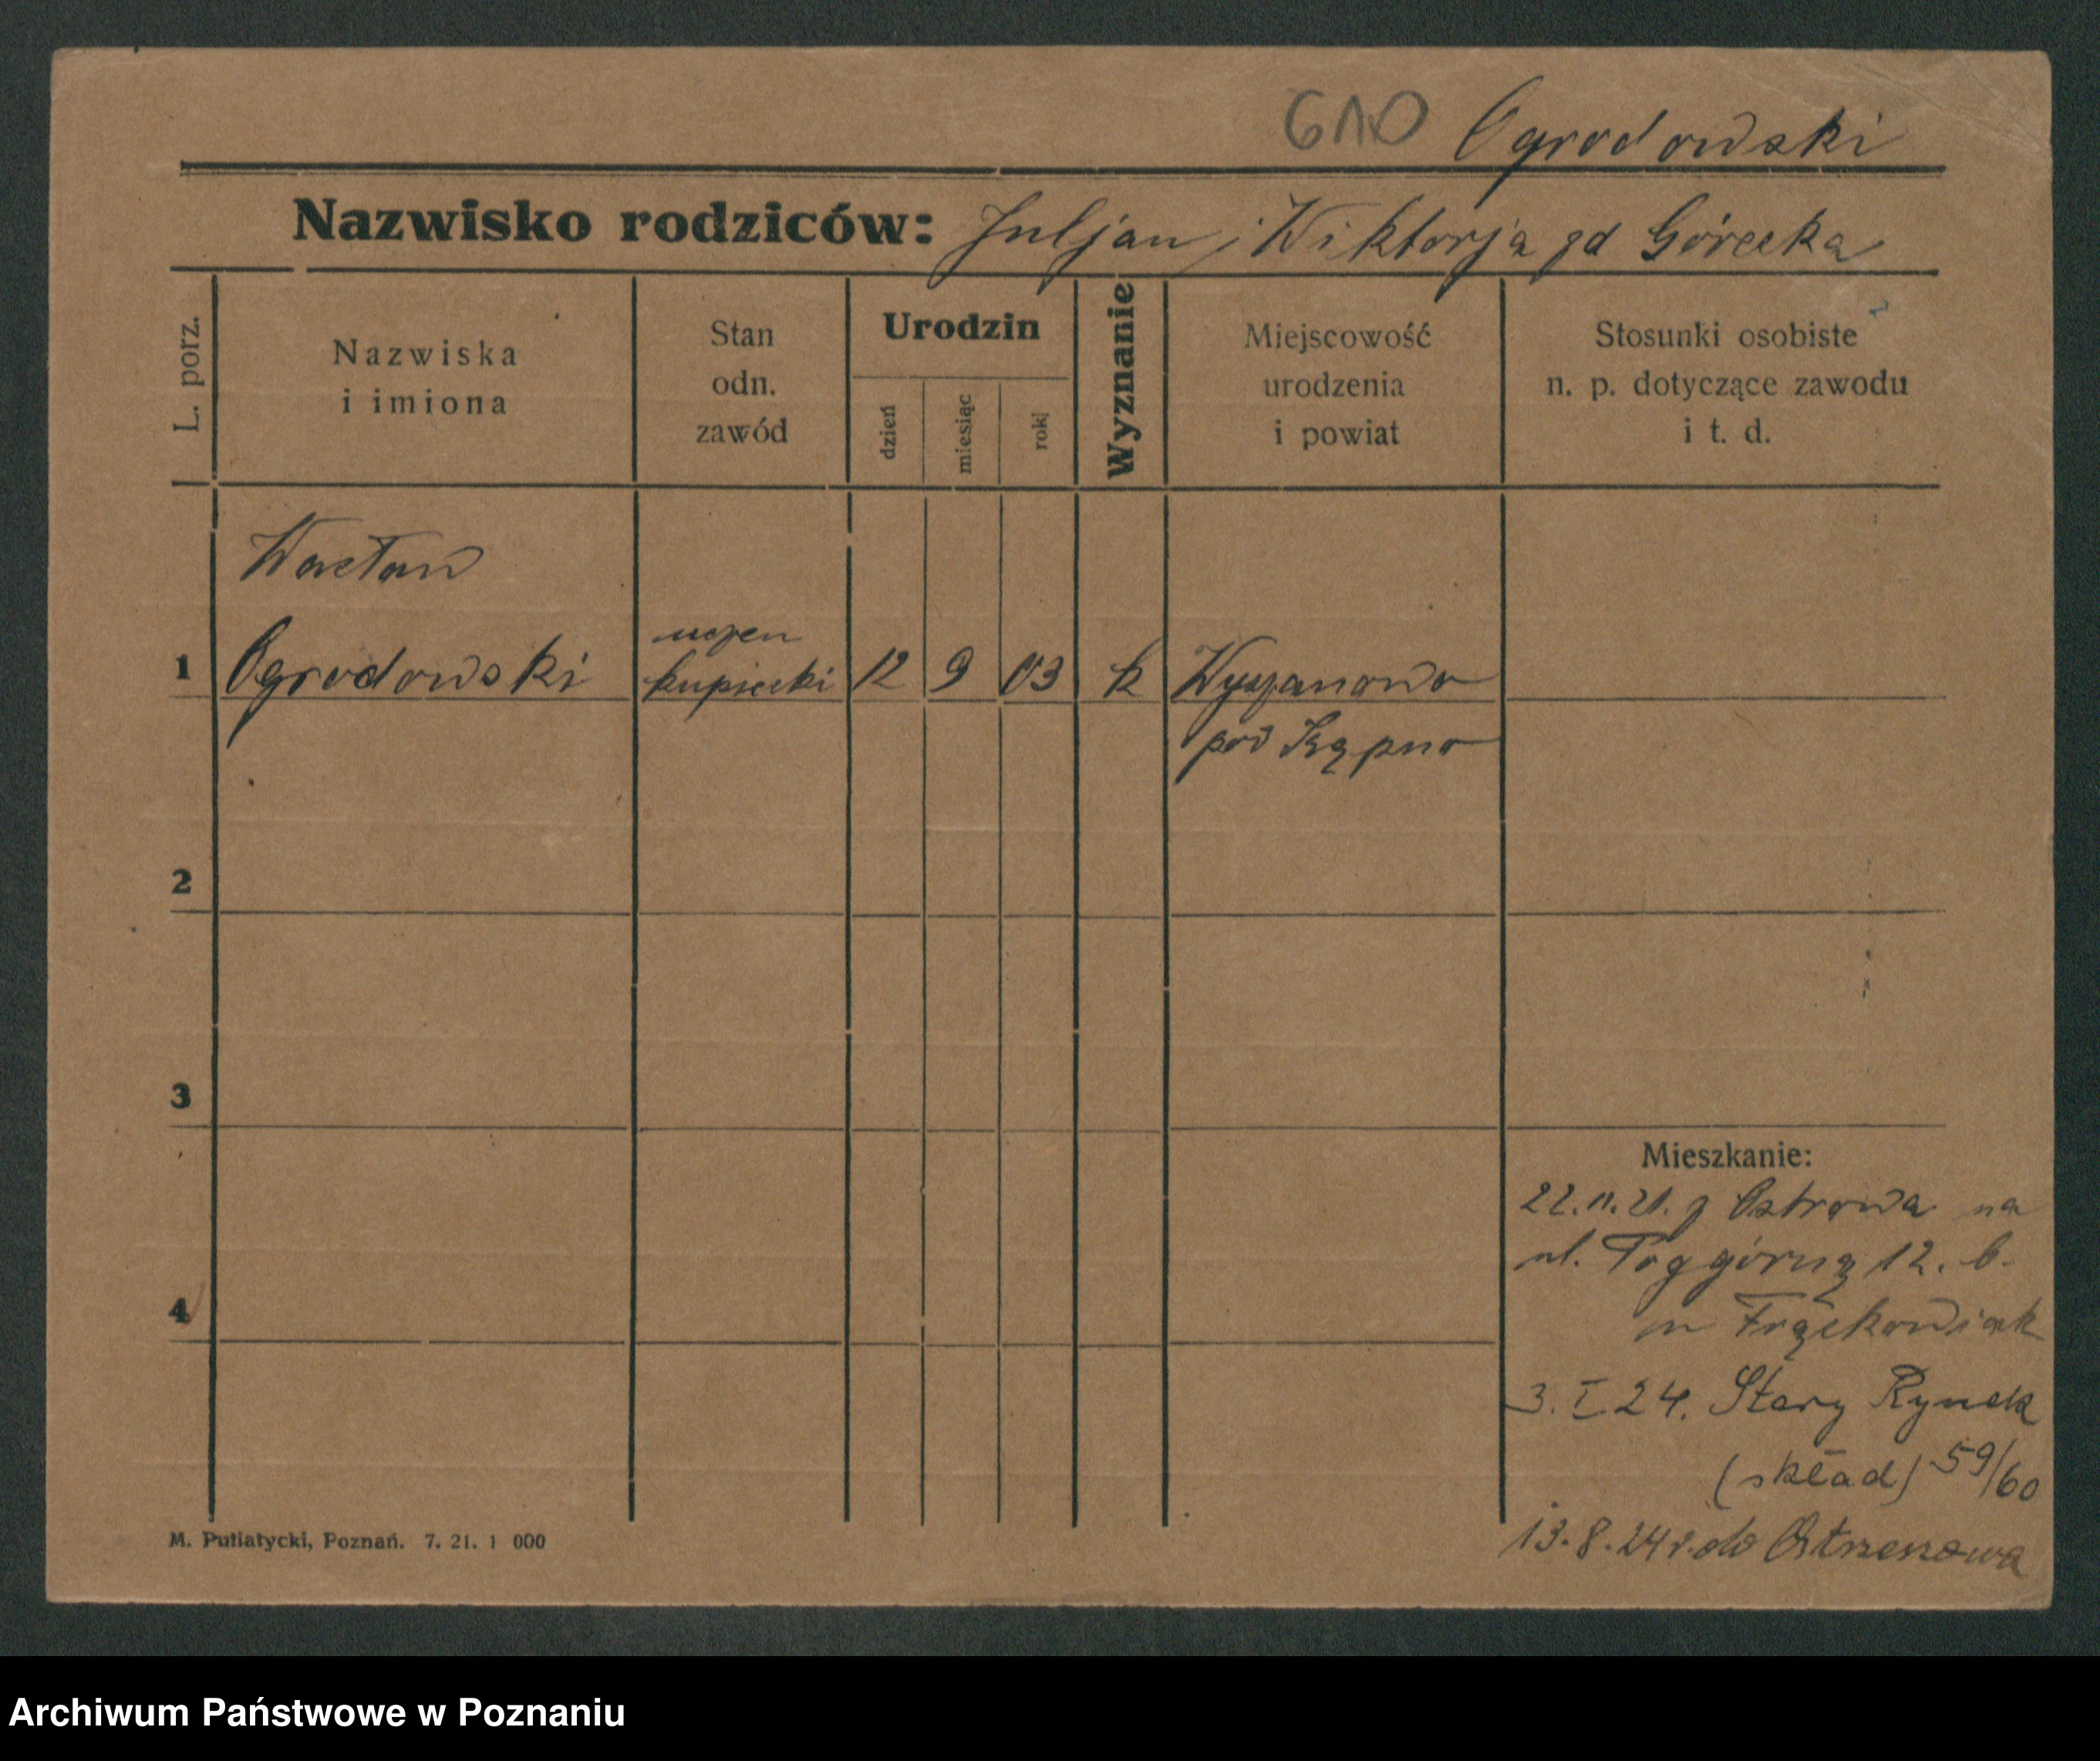 610 Ogrodowski
Nazwisko rodziców: Juljan i Wiktorja zd Górecka
L. porz.
Nazwiska
i imiona
Stan
odn.
zawód
Urodzin
dzień
miesiąc
rok
Wyznanie
Miejscowość
urodzenia
i powiat
Stosunki osobiste
n. p. dotyczące zawodu
i t. d.
Wacław
uczen
1 Ogrodowski kupiecki 12 9 03 k Wyszanowo
pod Kępno
2
3
4
Mieszkanie:
22.11.21. z Ostrowa na
ul. 12. b.
3. I 24. Stary Rynek
(skład) 59/60
13.8.24 r. do Ostrzeszowa
M. Putiatycki, Poznań. 7. 21. 1 000
Archiwum Państwowe w Poznaniu